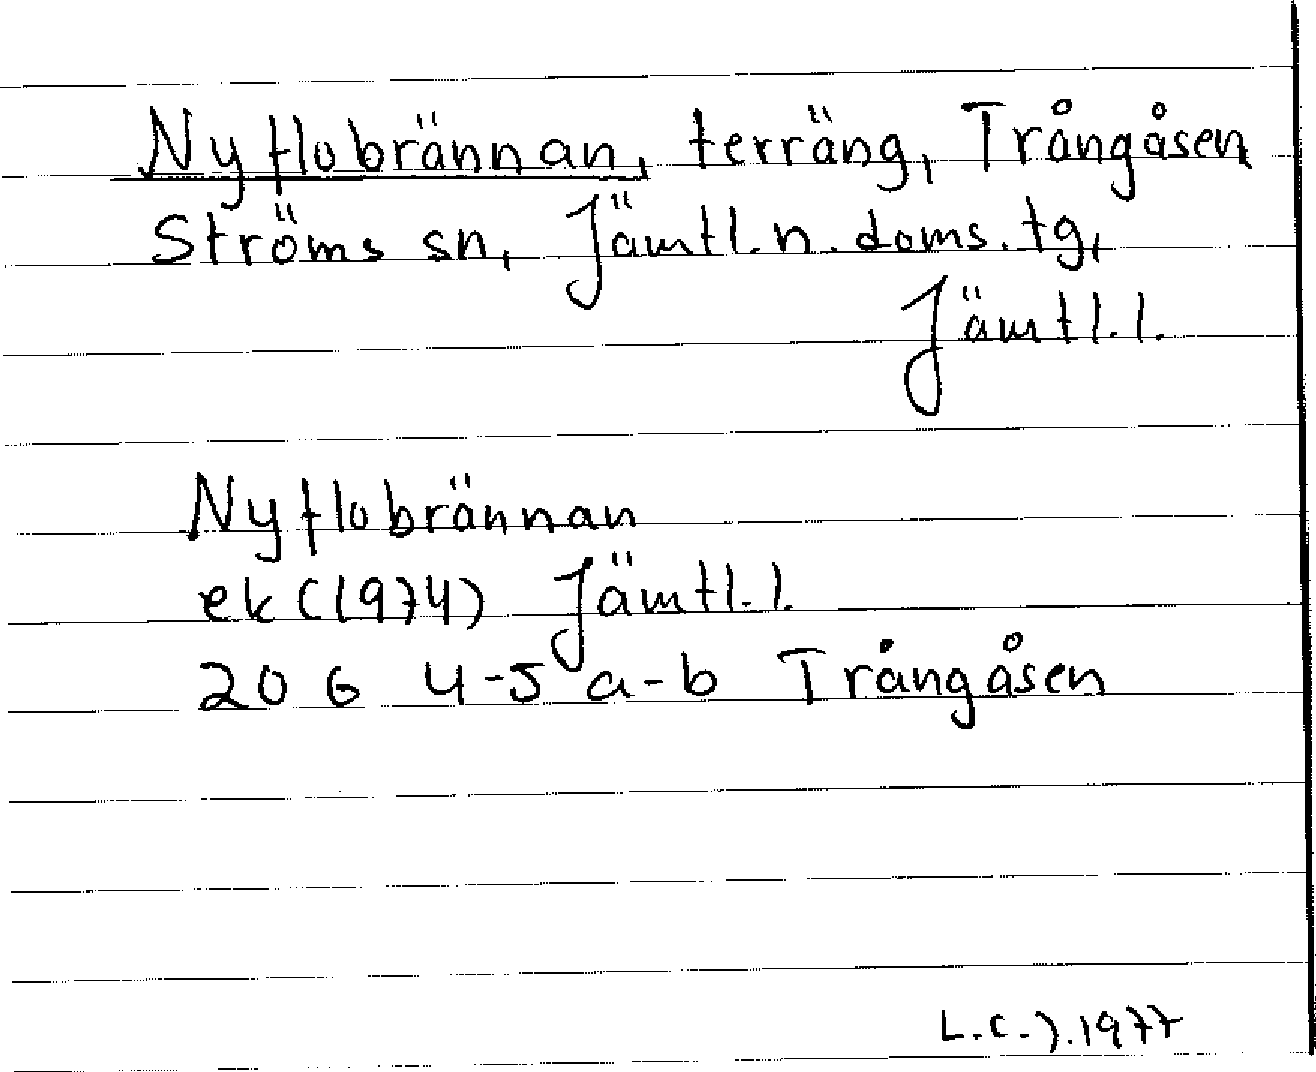 Nyflobrännan, terräng, Trångåsen
Ströms sn, Jämtl. n. doms. tg,
Jämtl. l.
Nyflobrännan
ek (1974) Jämtl. l.
20 G 4-5 a-b Trångåsen
L.C.J. 1977